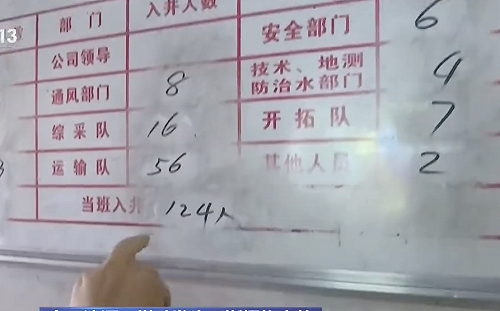 13
部门 入井人数
公司领导
通风部门 8
综采队 16
运输队 56
当班入井 124人
安全部门 6
技术、地测
防治水部门 4
开拓队 7
其他人员 2